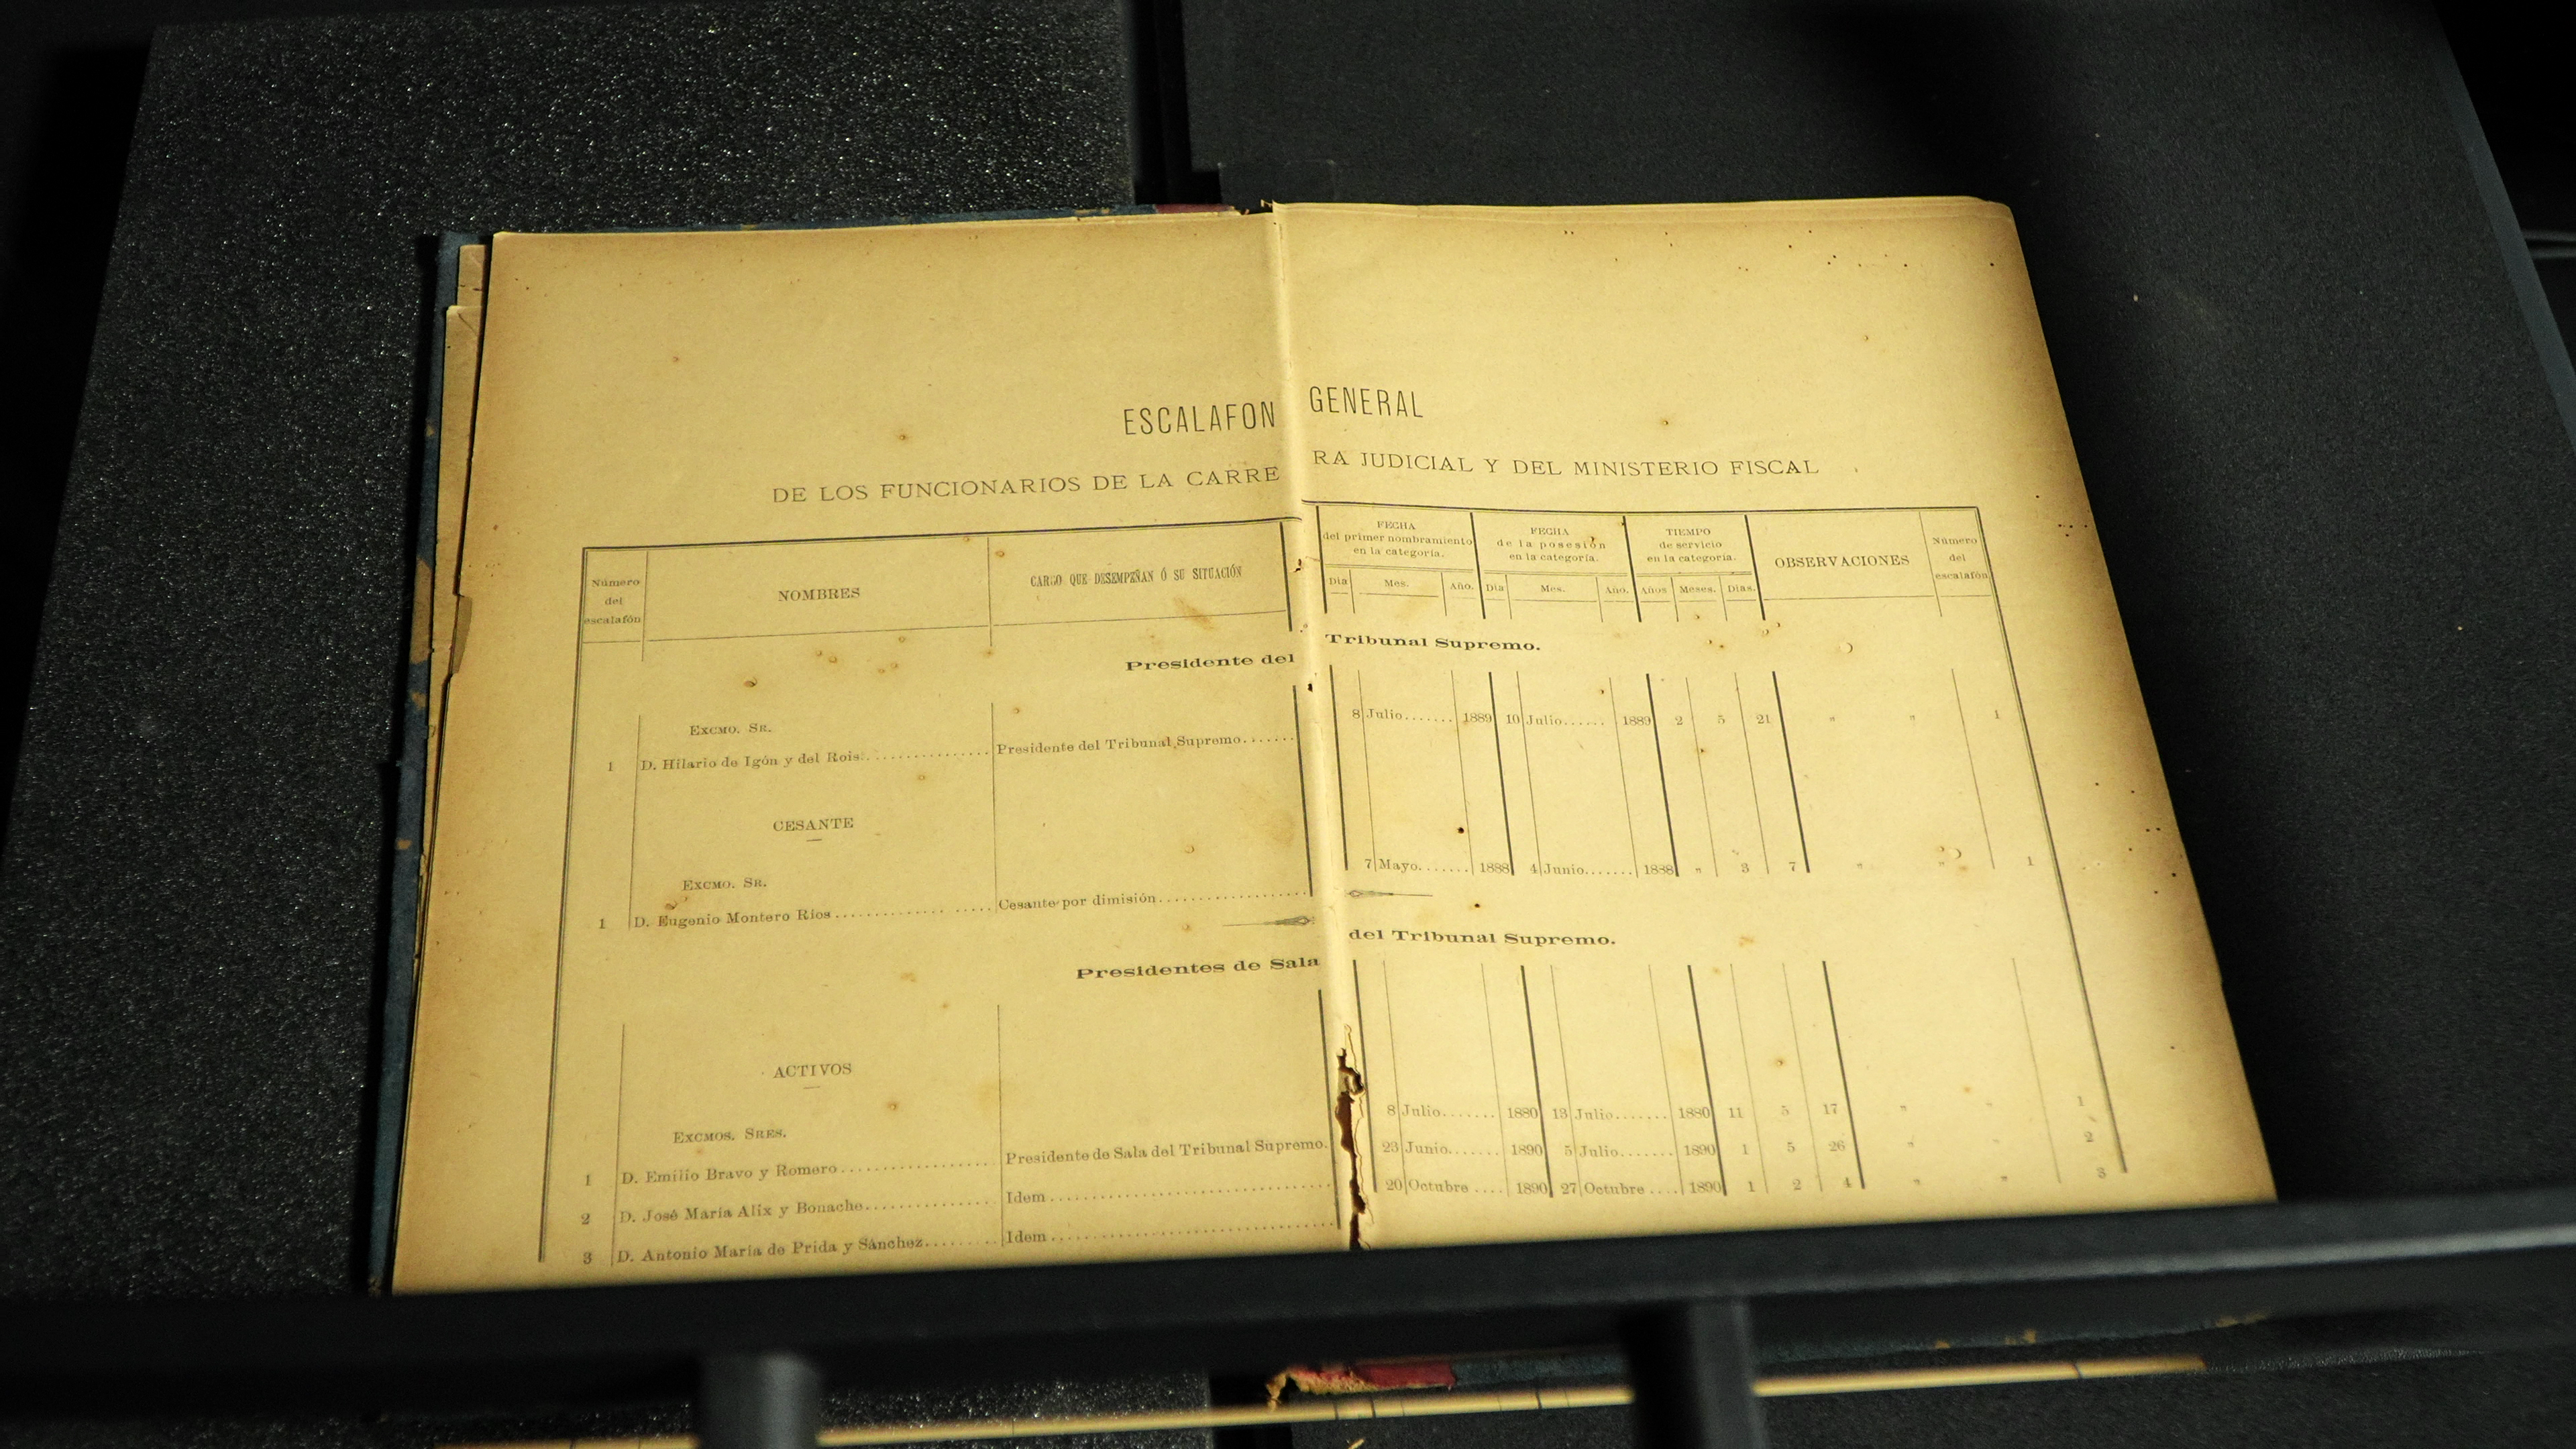 ESCALAFON GENERAL
DE LOS FUNCIONARIOS DE LA CARRERA JUDICIAL Y DEL MINISTERIO FISCAL
Número del escalafón
NOMBRES
CARGO QUE DESEMPEÑAN Ó SU SITUACIÓN
FECHA del primer nombramiento en la categoría.
Día Mes. Año.
FECHA de la posesión en la categoría.
Día Mes. Año.
TIEMPO de servicio en la categoría.
Años Meses. Días.
OBSERVACIONES
Número del escalafón
Presidente del Tribunal Supremo.
EXCMO. SR.
1 D. Hilario de Igón y del Rois. Presidente del Tribunal Supremo. 8 Julio. 1889 10 Julio. 1889 2 5 21 " " 1
CESANTE
EXCMO. SR.
1 D. Eugenio Montero Rios Cesante por dimisión. 7 Mayo. 1888 4 Junio. 1888 " 3 7 " " 1
Presidentes de Sala del Tribunal Supremo.
ACTIVOS
EXCMOS. SRES.
1 D. Emilio Bravo y Romero Presidente de Sala del Tribunal Supremo. 8 Julio. 1880 13 Julio. 1880 11 5 17 " " 1
2 D. José María Alix y Bonache. Idem 23 Junio. 1890 5 Julio. 1890 1 5 26 " " 2
3 D. Antonio María de Prida y Sánchez. Idem 20 Octubre 1890 27 Octubre 1890 1 2 4 " " 3